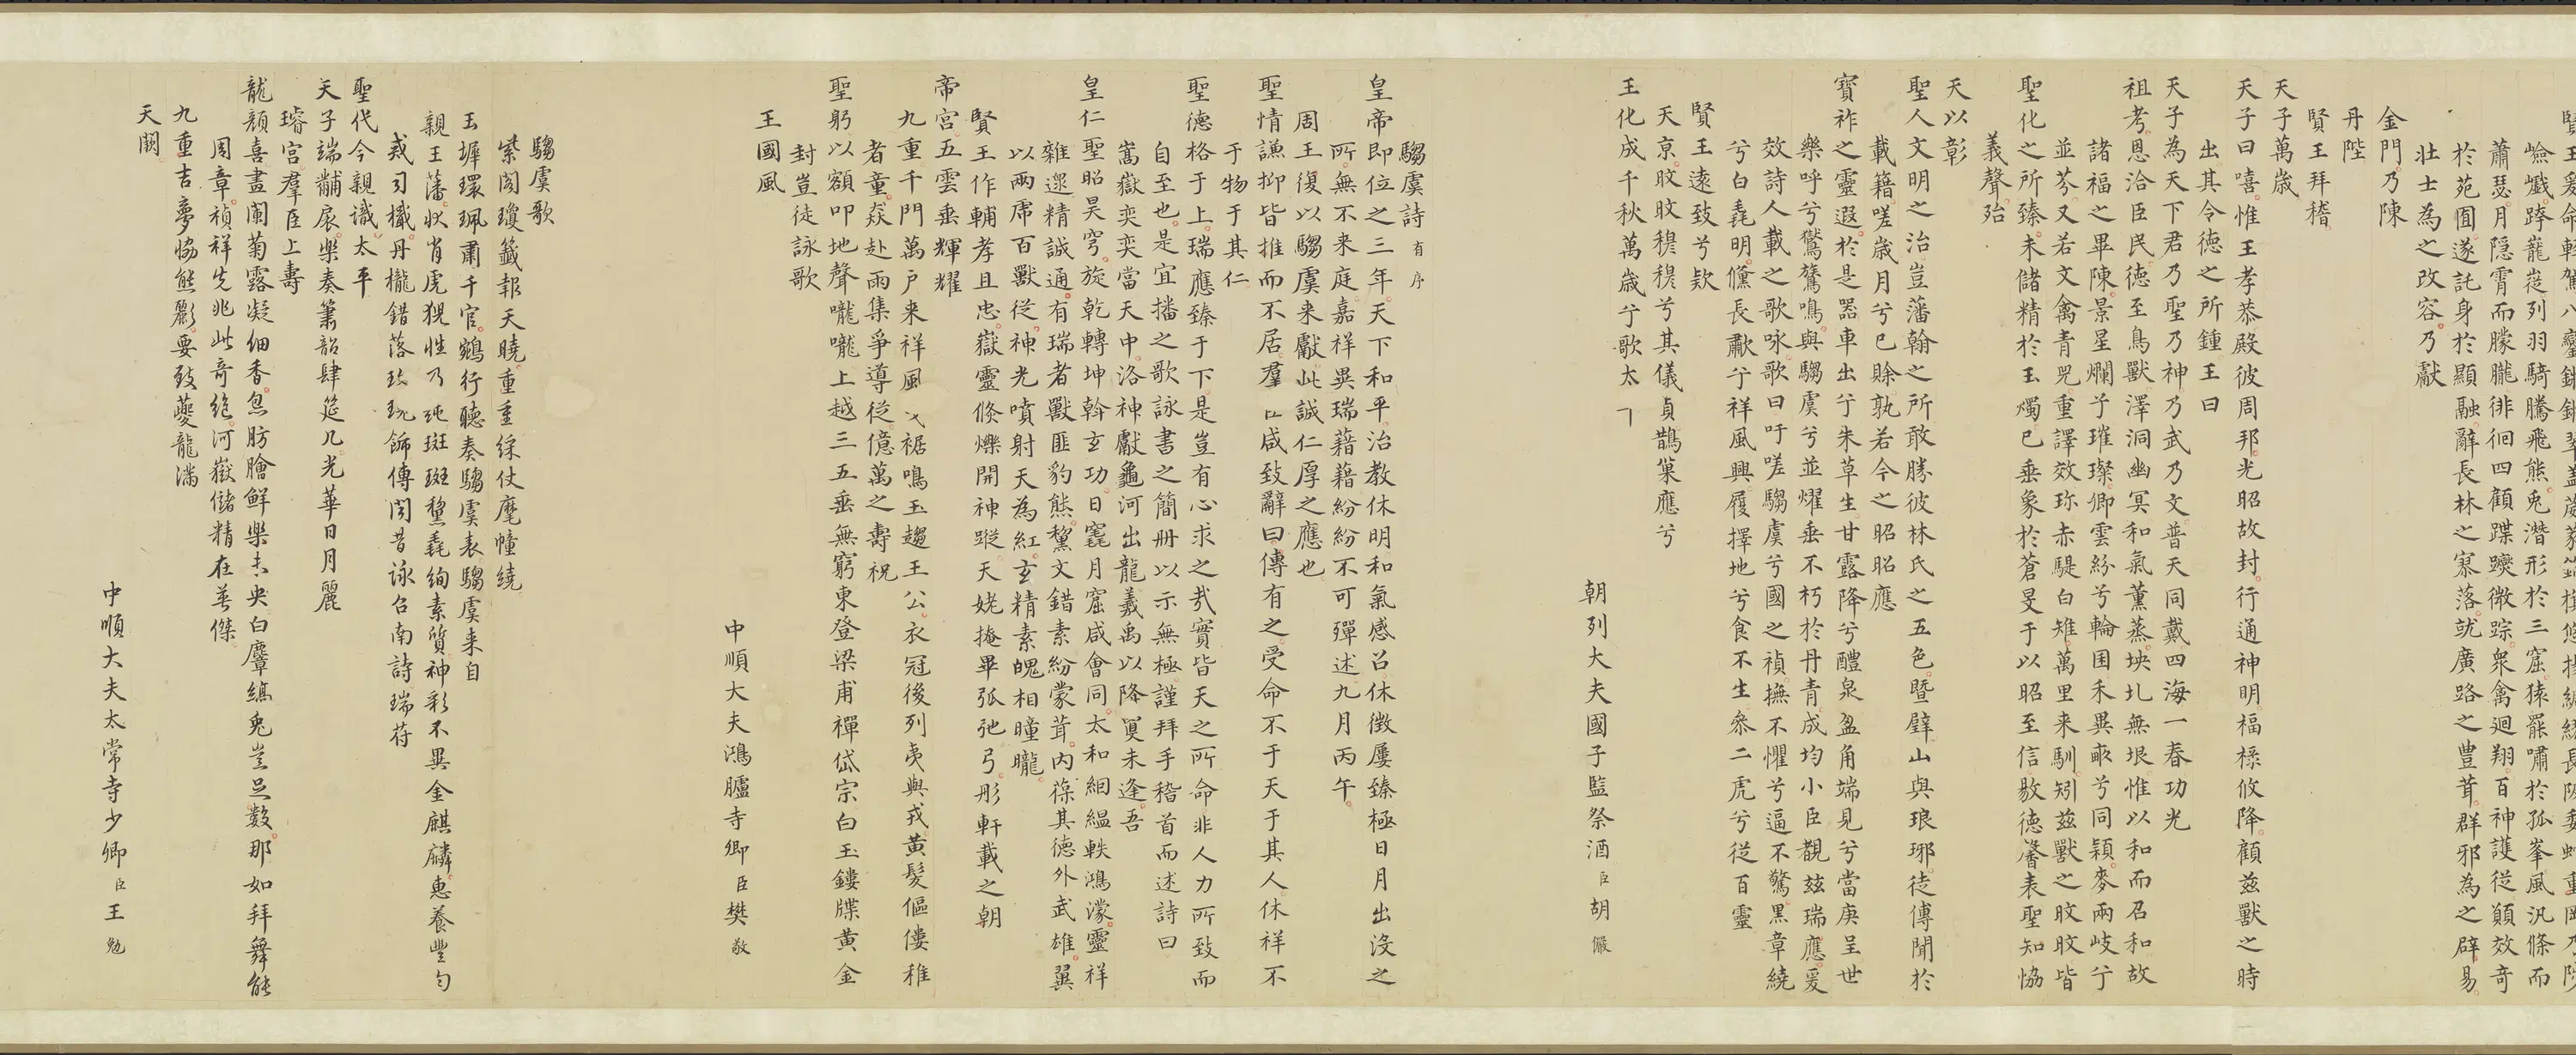 於苑囿遂託身於顯融辭長林之寥落就廣路之豊茸群邪為之辟易
壯士為之改容乃獻
金門乃陳
丹陛
賢王拜稽
天子萬歲
天子曰嘻惟王孝恭殿彼周邦光昭故封行通神明福祿攸降顧茲獸之時
出其令德之所鍾王曰
天子為天下君乃聖乃神乃武乃文普天同戴四海一春功光
祖考恩洽臣民德至鳥獸澤洞幽冥和氣薰蒸坱圠無垠惟以和而召和故
諸福之畢陳景星爛兮璀璨卿雲紛兮輪囷禾異畝兮同穎麥兩岐兮
並芬又若文禽青兕重譯效珎赤騠白雉萬里来馴矧茲獸之旼旼皆
聖化之所臻朱儲精於玉燭已垂象於蒼旻于以昭至信敭德馨表聖知恊
義聲殆
天以彰
聖人文明之治豈藩翰之所敢勝彼林氏之五色暨辟山與琅琊徒傳聞於
載籍嗟歲月兮已賖孰若今之昭昭應
寶祚之靈遐於是器車出兮朱草生甘露降兮醴泉盈角端見兮當庚呈世
樂呼兮鸑鷟鳴與騶虞兮並燿垂不朽於丹青成均小臣覩茲瑞應爰
效詩人載之歌咏歌曰吁嗟騶虞兮國之禎撫不懼兮逼不驚黑章繞
兮白毳明儻長歗兮祥風興履擇地兮食不生參二虎兮從百靈
賢王遠致兮欵
天京旼旼穆穆兮其儀貞鵲巢應兮
王化成千秋萬歲兮歌太
朝列大夫國子監祭酒臣胡儼
騶虞詩有序
皇帝即位之三年天下和平治教休明和氣感召休徵屢臻極日月出没之
所無不来庭嘉祥異瑞藉藉紛紛不可殫述九月丙午
周王復以騶虞来獻此誠仁厚之應也
聖情謙抑皆推而不居羣臣咸致辭曰傳有之受命不于天于其人休祥不
于物于其仁
聖德格于上瑞應臻于下是豈有心求之㢤實皆天之所命非人力所致而
自至也是宜播之歌詠書之簡冊以示無極謹拜手稽首而述詩曰
嵩嶽奕奕當天中洛神獻龜河出龍羲禹以降寞未逢吾
皇仁聖昭昊穹旋乾轉坤斡玄功日竁月窟咸會同太和絪緼軼鴻濛靈祥
雜遝精誠通有瑞者獸匪豹熊黧文錯素紛蒙茸内葆其德外武雄翼
以兩虎百獸從神光噴射天為紅玄精素魄相曈曨
賢王作輔孝且忠嶽靈倐爍開神蹤天姥掩畢弧弛弓彤軒載之朝
帝宮五雲垂輝耀
九重千門萬户来祥風裾鳴玉趨王公衣冠後列夷與戎黃髮傴僂稚
者童猋赴雨集爭導從億萬之壽祝
聖躬以額叩地聲嚨嚨上越三五垂無窮東登梁甫禪岱宗白玉鏤牒黃金
封豈徒詠歌
王國風
中順大夫鴻臚寺卿臣樊敬
騶虞歌
紫閣瓊籤報天曉重重綵仗麾幢繞
玉墀環珮肅千官鵷行聽奏騶虞表騶虞来自
親王藩狀肖虎猊性乃純斑斑黧毳絢素質神彩不異金麒麟惠養豐勻
戒司檻丹櫳錯落珎玩飾傳聞昔詠召南詩瑞符
聖代今親識太平
天子端黼扆樂奏簫韶肆筵几光華日月麗
璿宮羣臣上壽
龍顏喜盡闌菊露凝細香炰肪膾鮮樂未央白麞縞兔豈足數那如拜舞能
周章禎祥先兆此奇絶河嶽儲精在英傑
九重吉夢恊熊羆要致夔龍滿
天闕
中順大夫太常寺少卿臣王勉